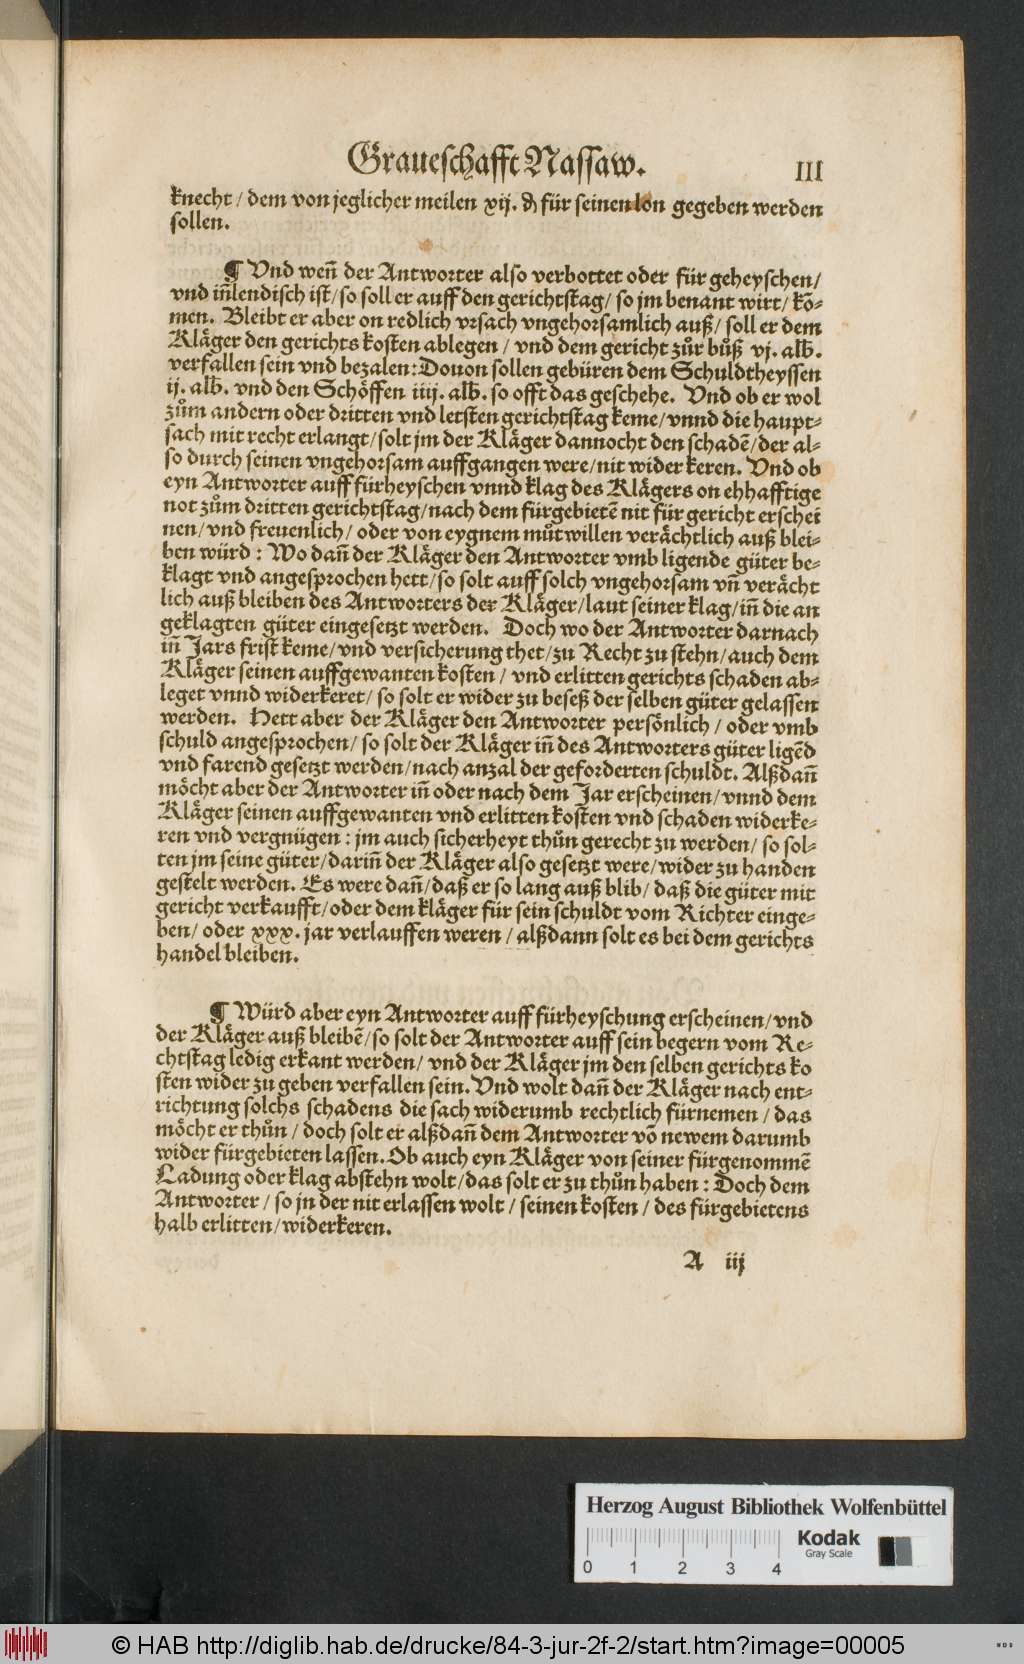 Graueschafft Nassaw. III
knecht / dem von jeglicher meilen xij. ₰ für seinen lon gegeben werden
sollen.
¶ Vnd weñ der Antworter also verbottet oder für geheyschen /
vnd iñlendisch ist / so soll er auff den gerichtstag / so jm benant wirt / kõ-
men. Bleibt er aber on redlich vrsach vngehorsamlich auß / soll er dem
Kläger den gerichts kosten ablegen / vnd dem gericht zůr bůß vj. alb.
verfallen sein vnd bezalen: Douon sollen gebüren dem Schuldtheyssen
ij. alb. vnd den Schöffen iiij. alb. so offt das geschehe. Vnd ob er wol
zům andern oder dritten vnd letsten gerichtstag keme / vnnd die haupt-
sach mit recht erlangt / solt jm der Kläger dannocht den schadẽ / der al-
so durch seinen vngehorsam auffgangen were / nit widerkeren. Vnd ob
eyn Antworter auff fürheyschen vnnd klag des Klägers on ehhafftige
not zům dritten gerichtstag / nach dem fürgebietẽ nit für gericht erschei
nen / vnd freuenlich / oder von eygnem můtwillen verächtlich auß blei-
ben würd : Wo dañ der Kläger den Antworter vmb ligende güter be-
klagt vnd angesprochen hett / so solt auff solch vngehorsam vñ verächt
lich auß bleiben des Antworters der Kläger / laut seiner klag / iñ die an
geklagten güter eingesetzt werden. Doch wo der Antworter darnach
iñ Jars frist keme / vnd versicherung thet / zu Recht zu stehn / auch dem
Kläger seinen auffgewanten kosten / vnd erlitten gerichts schaden ab-
leget vnnd widerkeret / so solt er wider zu beseß der selben güter gelassen
werden. Hett aber der Kläger den Antworter persönlich / oder vmb
schuld angesprochen / so solt der Kläger iñ des Antworters güter ligẽd
vnd farend gesetzt werden / nach anzal der geforderten schuldt. Alßdañ
möcht aber der Antworter iñ oder nach dem Jar erscheinen / vnnd dem
Kläger seinen auffgewanten vnd erlitten kosten vnd schaden widerke-
ren vnd vergnügen : jm auch sicherheyt thůn gerecht zu werden / so sol-
ten jm seine güter / dariñ der Kläger also gesetzt were / wider zu handen
gestelt werden. Es were dañ / daß er so lang auß blib / daß die güter mit
gericht verkaufft / oder dem kläger für sein schuldt vom Richter einge-
ben / oder xxx. jar verlauffen weren / alßdann solt es bei dem gerichts
handel bleiben.
¶ Würd aber eyn Antworter auff fürheyschung erscheinen / vnd
der Kläger auß bleibẽ / so solt der Antworter auff sein begern vom Re-
chtstag ledig erkant werden / vnd der Kläger jm den selben gerichts ko
sten wider zu geben verfallen sein. Vnd wolt dañ der Kläger nach ent-
richtung solchs schadens die sach widerumb rechtlich fürnemen / das
möcht er thůn / doch solt er alßdañ dem Antworter võ newem darumb
wider fürgebieten lassen. Ob auch eyn Kläger von seiner fürgenommẽ
Ladung oder klag abstehn wolt / das solt er zu thůn haben : Doch dem
Antworter / so jn der nit erlassen wolt / seinen kosten / des fürgebietens
halb erlitten / widerkeren.
A iij
Herzog August Bibliothek Wolfenbüttel
Kodak
Gray Scale
0 1 2 3 4
© HAB http://diglib.hab.de/drucke/84-3-jur-2f-2/start.htm?image=00005